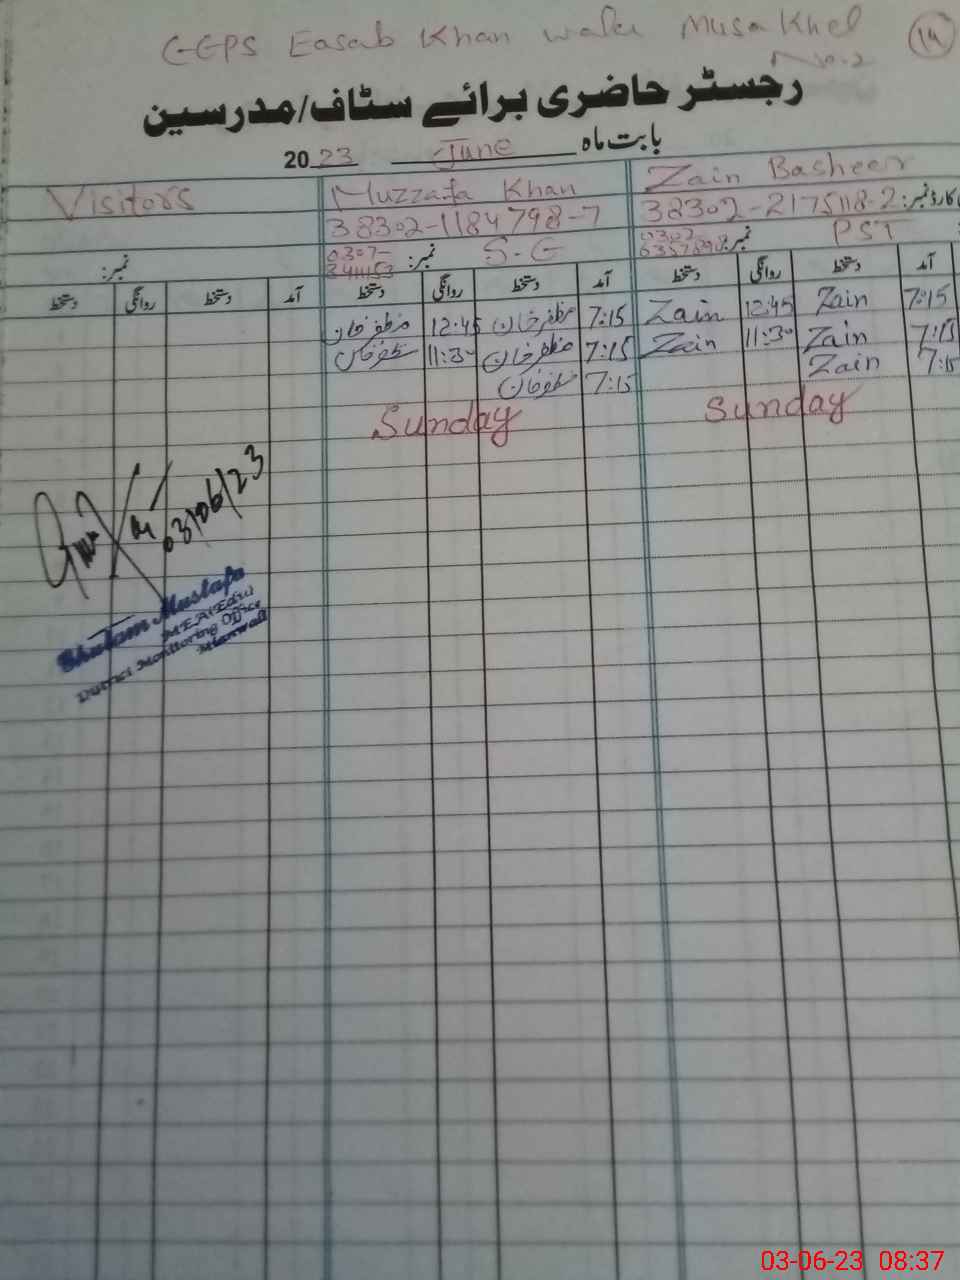 GGPS Easab Khan wala Musa Khel
No.2
14
رجسٹر حاضری برائے سٹاف/مدرسین
بابت ماہ June 2023
Zain Basheer
Muzzafa Khan
Visitors
کارڈ نمبر: 38302-2175118-2
38302-1184798-7
PST نمبر: 0302-
S.G نمبر: 0307-
نمبر:
آمد دستخط روانگی دستخط آمد دستخط روانگی دستخط آمد دستخط روانگی دستخط
7:15 Zain 12:45 Zain 7:15 مظفر خان 12:45 مظفر خان
7:15 Zain 11:30 Zain 7:15 مظفر خان 11:30 مظفر خان
7:15 Zain 7:15 مظفر خان
Sunday Sunday
03/06/23
Ghulam Mustafa
MEA(Edu)
District Monitoring Office
Mianwali
03-06-23 08:37